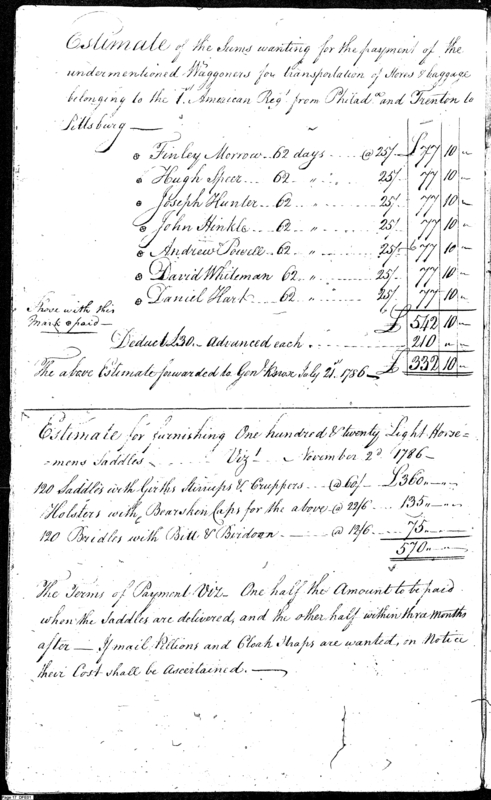 Estimate of the Sums wanting for the payment of the
undermentioned Waggoners for transportation of Stores & baggage
belonging to the 1st American Regt from Philada and Trenton to
Pittsburg —
Finley Morrow .. 62 days ..... @ 25/. £ 77 10 "
Hugh Speer .. 62 " ..... 25/. 77 10 "
Joseph Hunter .. 62 " ..... 25/. 77 10 "
John Hinkle .. 62 " ..... 25/. 77 10 "
Andrew Powell .. 62 " ..... 25/. 77 10 "
David Whiteman 62 " ..... 25/. 77 10 "
Daniel Hart 62 " ..... 25/. 77 10 "
Those with this
Mark paid —
£ 542 10 "
Deduct £30 — Advanced each ..... 210 " "
The above Estimate forwarded to Genl Knox July 21st 1786 — £ 332 10 "
Estimate for furnishing One hundred & twenty Light Horse=
=mens Saddles — Vizt — November 2d 1786 —
120 Saddles with Girths Stirrups & Cruppers — @ 60/ £360 " "
Holsters with Bearskin Caps for the above @ 22/6 135 " "
120 Bridles with Bitt & Bridoon — @ 12/6 75 " "
570 " "
The Terms of Payment Viz — One half the Amount to be paid
when the Saddles are delivered, and the other half within three months
after — If mail Pillions and Cloak Straps are wanted, on Notice
their Cost shall be Ascertained. —